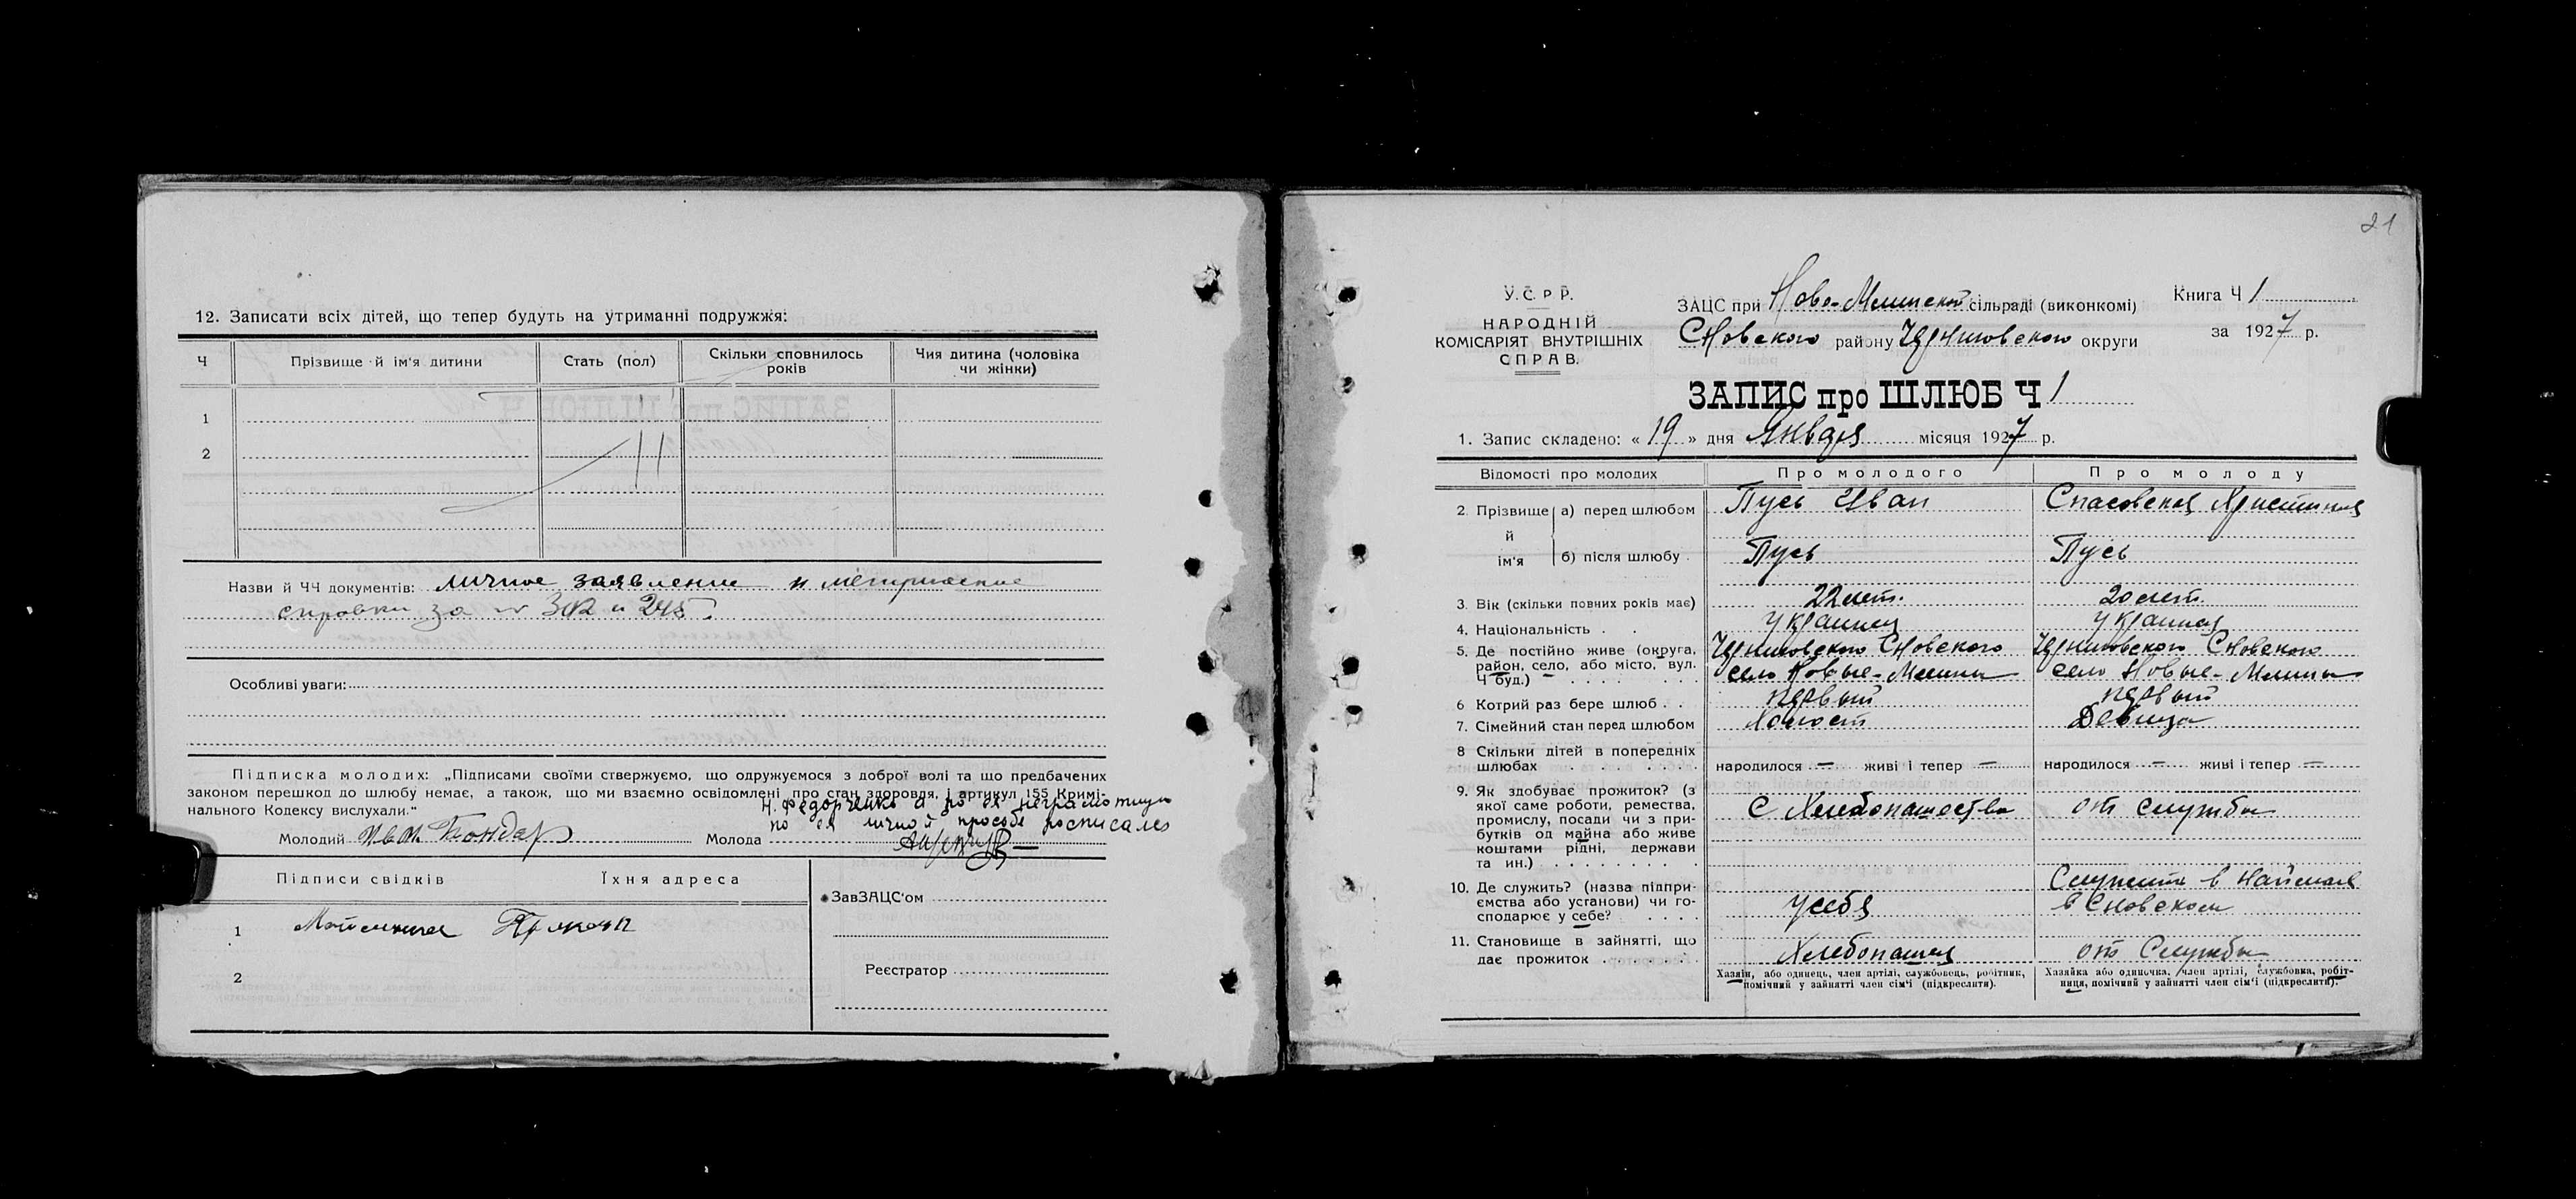 12. Записати всіх дітей, що тепер будуть на утриманні подружжя:
Ч Прізвище й ім'я дитини Стать (пол) Скільки сповнилось років Чия дитина (чоловіка чи жінки)
1
2
Назви й ЧЧ документів: личное заявление и метрические
справки за № 302 и 245
Особливі уваги:
Підписка молодих: „Підписами своїми стверджуємо, що одружуємося з доброї волі та що предбачених
законом перешкод до шлюбу немає, а також, що ми взаємно освідомлені про стан здоровля, і артикул 155 Кримі-
нального Кодексу вислухали."
Н. Федорченко а по ея неграмотнии
по ея личной прозбе росписался
Молодий Иван Бондар Молода
Підписи свідків Їхня адреса
ЗавЗАЦС'ом
1
Реєстратор
2
21
У.С.Р.Р.
НАРОДНІЙ
КОМІСАРІЯТ ВНУТРІШНІХ
СПРАВ.
ЗАЦС при Ново-Млинской сільраді (виконкомі)
Сновского району Черниговского округи
Книга Ч 1
за 1927 р.
ЗАПИС про ШЛЮБ Ч 1
1. Запис складено: « 19 » дня Января місяця 1927 р.
Відомості про молодих Про молодого Про молоду
2. Прізвище й ім'я а) перед шлюбом Пусь Иван Спасовская Христиния
б) після шлюбу Пусь Пусь
3. Вік (скільки повних років має) 22 лет. 20 лет.
4. Національність украинец украинец
5. Де постійно живе (округа, Черниговского Сновского Черниговского Сновского
район, село, або місто, вул. село Новые-Млины село Новые-Млины
Ч буд.)
6 Котрий раз бере шлюб первый первый
7. Сімейний стан перед шлюбом Холост Девица
8 Скільки дітей в попередніх
шлюбах народилося — живі і тепер — народилося — живі і тепер —
9. Як здобуває прожиток? (з
якої саме роботи, ремества, С Хлебопашества от службы
промислу, посади чи з при-
бутків од майна або живе
коштами рідні, держави
та ин.)
10. Де служить? (назва підпри- Служит в найомах
ємства або установи) чи го- у себя в Сновском
сподарює у себе?
11. Становище в зайнятті, що
дає прожиток Хлебопашец от Службы
Хазяїн, або одинець, член артілі, службовець, робітник,
помічний у зайнятті член сім'ї (підкреслити).
Хазяйка або одиночка, член артілі, службовка, робіт-
ниця, помічний у зайнятті член сім'ї (підкреслити).